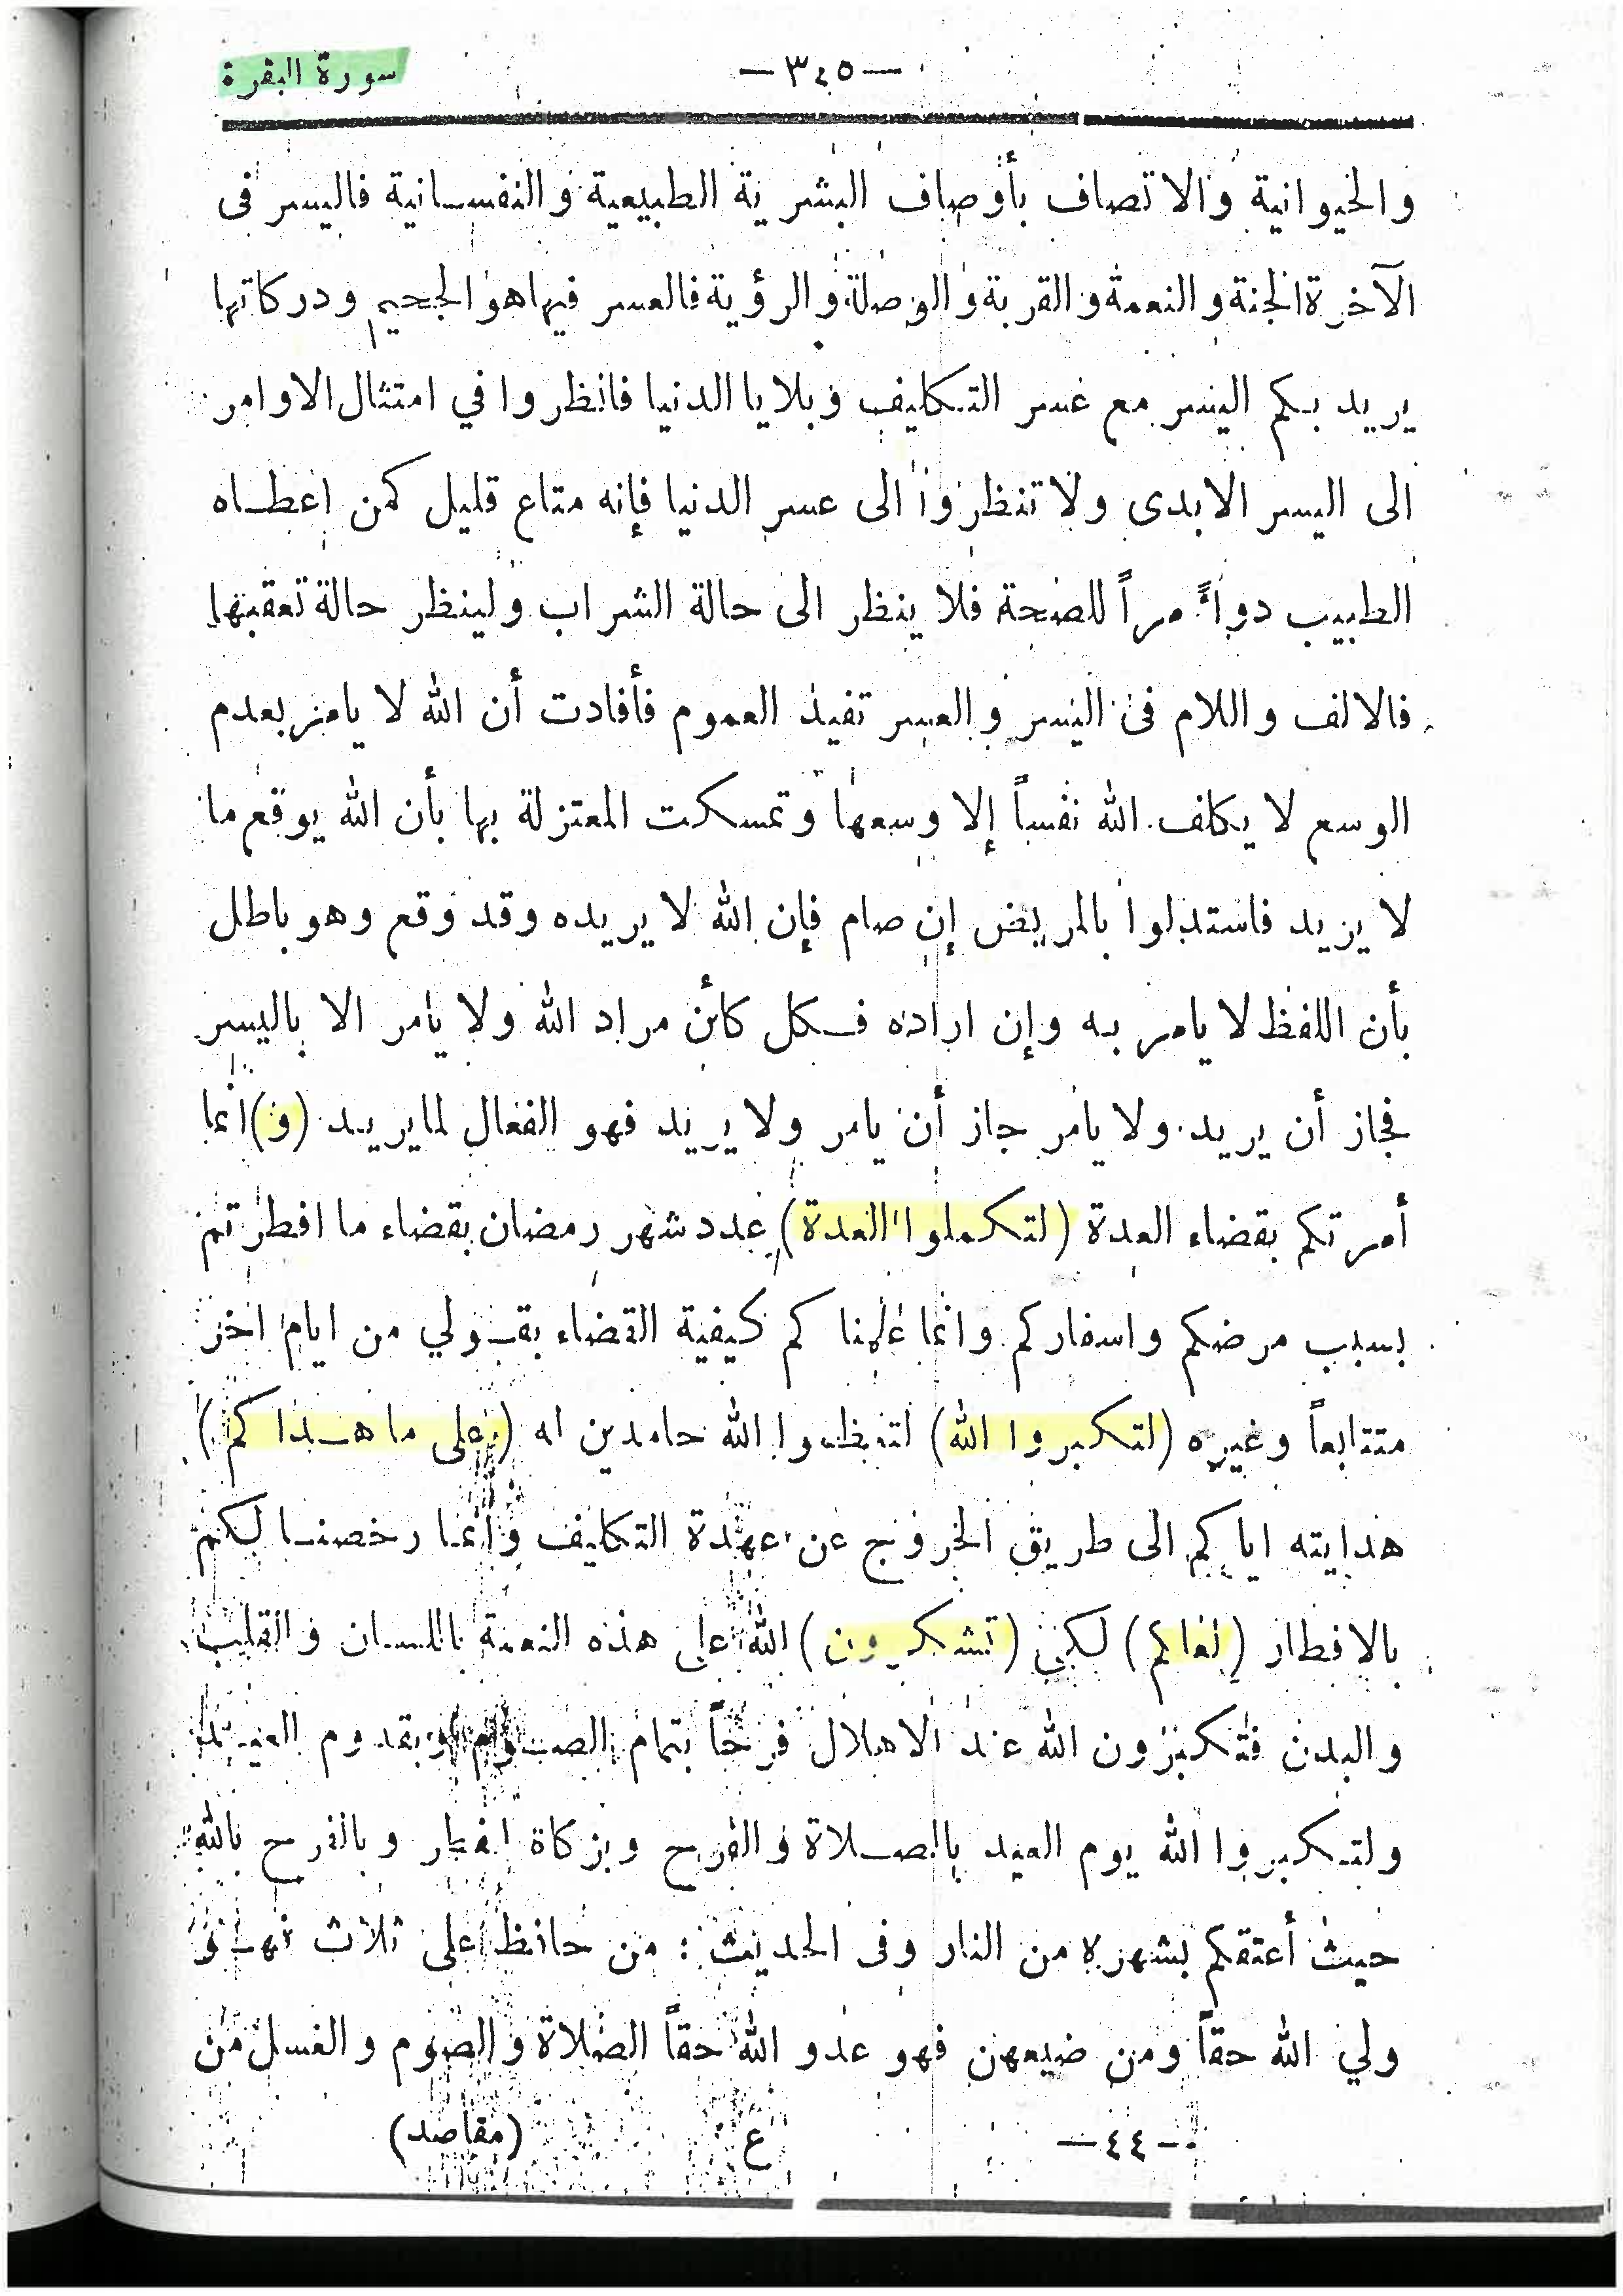 سورة البقرة
—٣٤٥—
والحيوانية والاتصاف بأوصاف البشرية الطبيعية والنفسانية فاليسر فى
الآخرة الجنة والنعمة والقربة والوصلة والرؤية فالعسر فيها هو الجحيم ودركاتها
يريد بكم اليسر مع عسر التكليف وبلايا الدنيا فانظروا في امتثال الاوامر
الى اليسر الابدى ولا تنظروا الى عسر الدنيا فإنه متاع قليل كمن اعطاه
الطبيب دواءً مراً للصحة فلا ينظر الى حالة الشراب ولينظر حالة تعقبها
فالالف واللام فى اليسر والعسر تفيد العموم فأفادت أن الله لا يامر بعدم
الوسع لا يكلف الله نفساً إلا وسعها وتمسكت المعتزلة بها بأن الله يوقع ما
لا يريد فاستدلوا بالمريض إن صام فإن الله لا يريده وقد وقع وهو باطل
بأن اللفظ لا يامر به وإن اراده فكل كائن مراد الله ولا يامر الا باليسر
فجاز أن يريد ولا يامر جاز أن يامر ولا يريد فهو الفعال لما يريد (و) انما
أمرتكم بقضاء العدة (لتكملوا العدة) عدد شهر رمضان بقضاء ما افطرتم
بسبب مرضكم واسفاركم وانما علمنا كم كيفية القضاء بقولي من ايام اخر
متتابعاً وغيره (لتكبروا الله) لتعظموا الله حامدين له (على ما هداكم)
هدايته اياكم الى طريق الخروج عن عهدة التكليف وانما رخصنا لكم
بالافطار (لعلكم) لكى (تشكرون) الله على هذه النعمة باللسان والقلب
والبدن فتكبرون الله عند الاهلال فرحاً بتمام الصوم وبقدوم العيد
ولتكبروا الله يوم العيد بالصلاة والفرح وبزكاة الفطر وبالفرح بالله
حيث أعتقكم بشهره من النار وفى الحديث : من حافظ على ثلاث فهو
ولي الله حقاً ومن ضيعهن فهو عدو الله حقاً الصلاة والصوم والغسل من
—٤٤—
ع
(مقاصد)